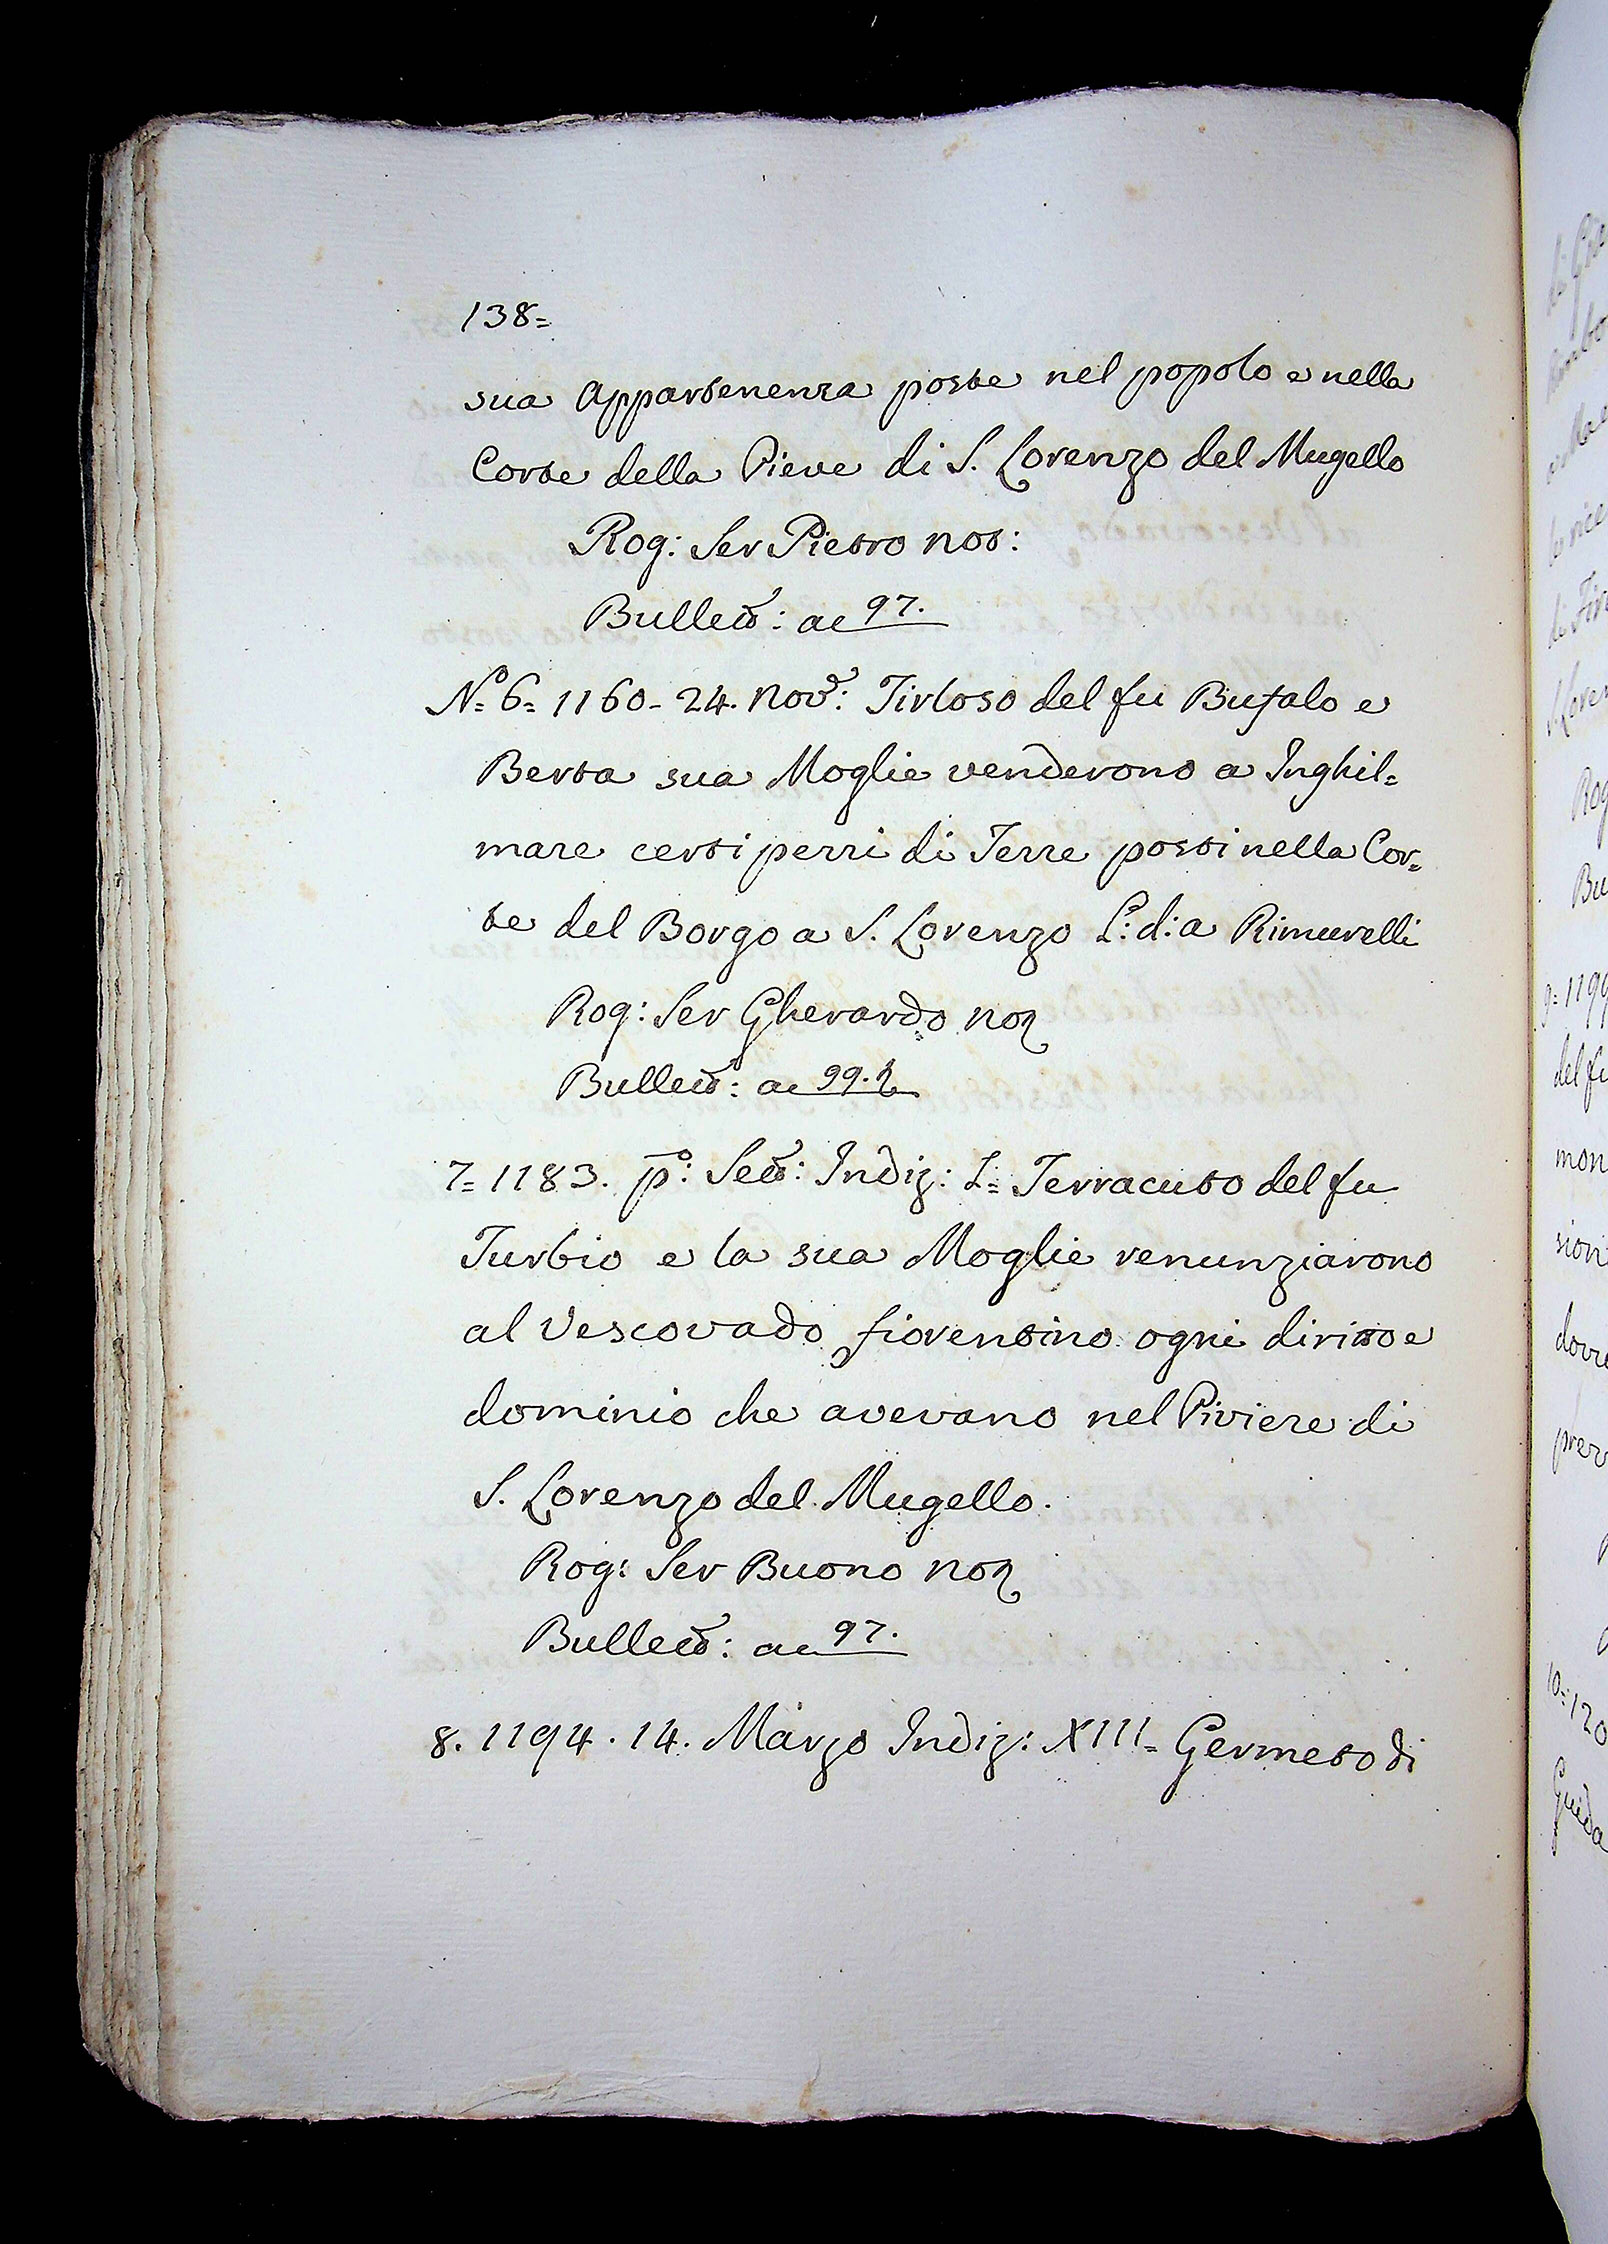 138=
sua Appartenenza poste nel popolo e nella
Corte della Pieve di S. Lorenzo del Mugello
Rog: Ser Pietro not:
Bullett: ac 97.
Nº 6= 1160- 24. Nov.e: Tirloso del fu Bufalo e
Berta sua Moglie venderono a Inghil=
mare certi pezzi di Terre posti nella Cor=
te del Borgo a S. Lorenzo L: d: a Rimurelli
Rog: Ser Gherardo not
Bullett: ac 99.
7= 1183. pº: Indiz: I= Terracuto del fu
Turbio e la sua Moglie renunziarono
al Vescovado fiorentino ogni diritto e
dominio che avevano nel Piviere di
S. Lorenzo del Mugello.
Rog: Ser Buono not
Bullett: ac 97.
8. 1194. 14. Marzo Indiz: XIII= Germeto di
1199
del fu
mon
sion
10= 120
Guida